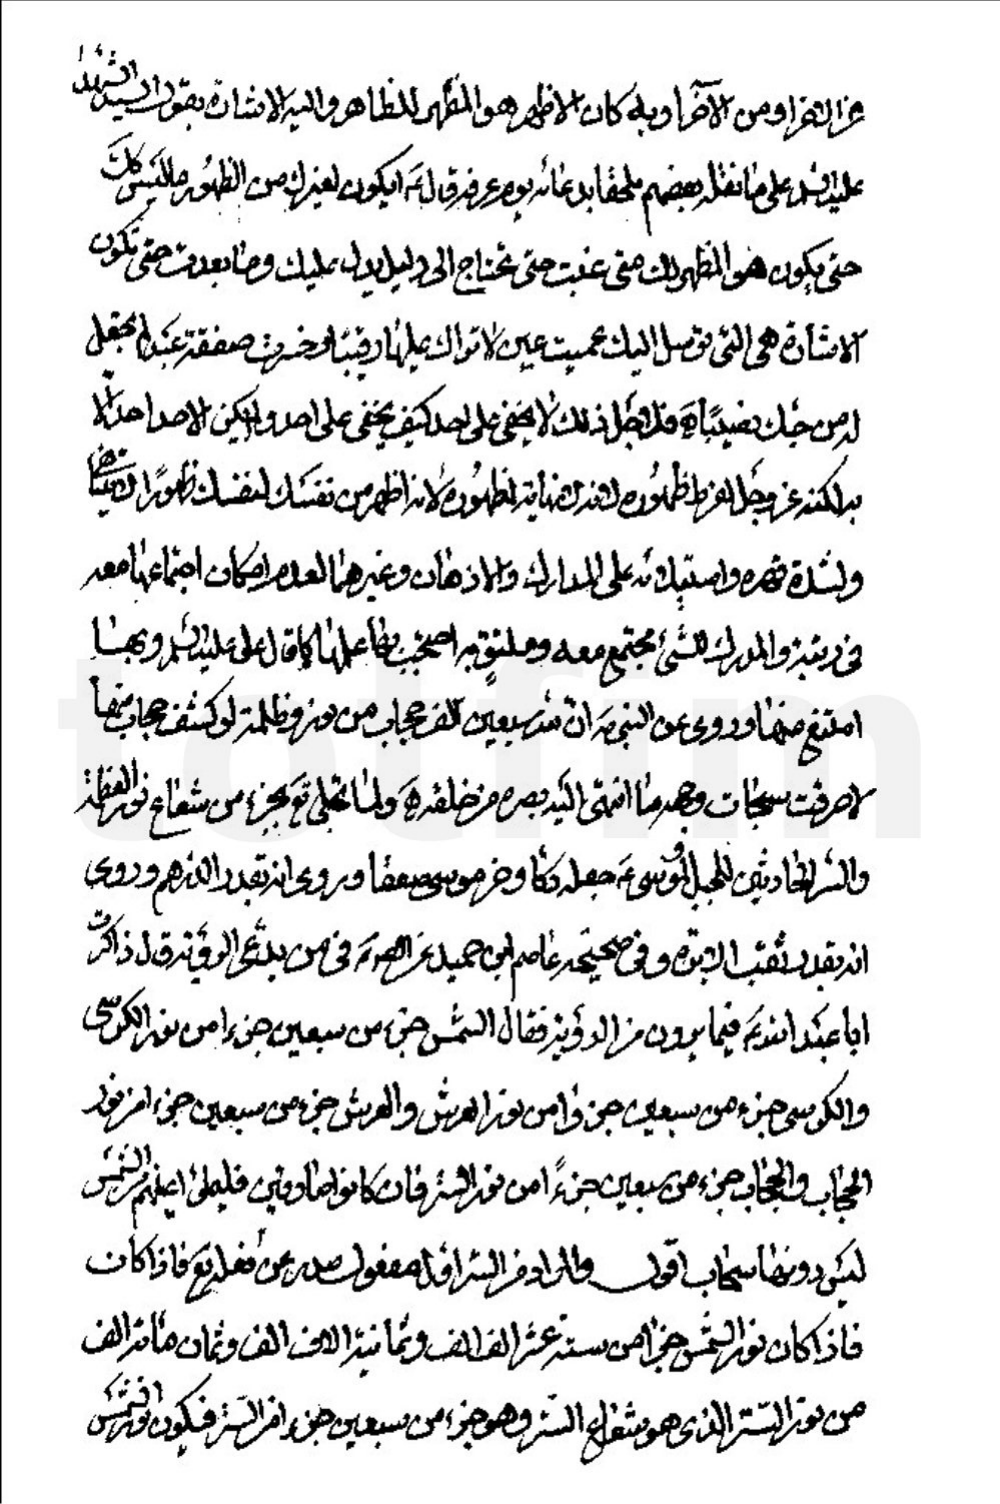 من الآخر وبه كان الاظهر هو المظهر للظاهر واليه الاشارة بقول سيد الشهداء
عليه السلام على ما نقله بعضهم ملحقا بدعائه يوم عرفة قال ع ايكون لغيرك من الظهور ما ليس لك
حتى يكون هو المظهر لك متى غبت حتى تحتاج الى دليل يدل عليك ومتى بعدت حتى تكون
الاشارة هي التي توصل اليك عميت عين لا تراك عليها رقيبا وخسرت صفقة عبد لم تجعل
له من حبك نصيبا فلاجل ذلك لا يخفى على احد كيف يخفى على احد ولكن الاحد احد لا
يدرك كنهه عز وجل لفرط ظهوره لانه اظهر من نفسك لنفسك ظهورا
ولشدة قهره واستيلائه على المدارك والاذهان وغيرهما لعدم امكان اجتماعها معه
في رتبة والمدرك للشئ مجتمع معه وملتق به احتجب بها عليها كما قال على عليه السلام وبها
امتنع منها وروى عن النبي ص ان لله سبعين الف حجاب من نور وظلمة لو كشف حجاب منها
لاحرقت سبحات وجهه ما انتهى اليه بصره من خلقه ولما تجلى تع بجزء من شعاع نور العظمة
والستر الحادثين للجبل لموسى ع جعله دكا وخر موسى صعقا وروى انه بقدر الدرهم وروى
انه بقدر ثقب الابرة وفي صحيحة عاصم ابن حميد عن الص ع في من يدعى الرؤية قال ذاكرت
ابا عبد الله ع فيما يرون من الرؤية فقال الشمس جزء من سبعين جزءا من نور الكرسي
والكرسي جزء من سبعين جزءا من نور العرش والعرش جزء من سبعين جزءا من نور
الحجاب والحجاب جزء من سبعين جزءا من نور الستر فان كانوا صادقين فليملئوا اعينهم من الشمس
ليس دونها سحاب اقول والمراد من الستر اول مفعول صدر عن فعله تع فاذا كان
فاذا كان نور الشمس جزءا من ستة عشر الف الف وثمانية الاف الف وثمان مائة الف
من نور الستر الذي هو شعاع الستر وهو جزء من سبعين جزءا من الستر فيكون نور الشمس